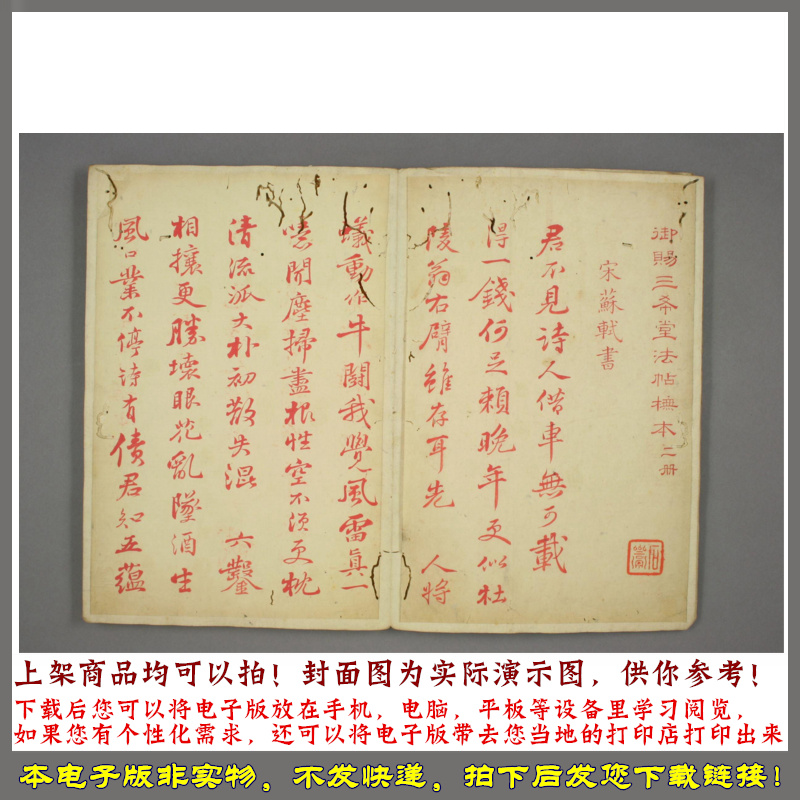 御賜三希堂法帖橅本二册
宋蘇軾書
君不見詩人借車無可載
得一錢何足賴晚年更似杜
陵翁右臂雖存耳先 人將
蟻動作牛鬪我覺風雷真一
噫聞塵掃盡根性空不須更枕
清流派大朴初散失混 六鑿
相攘更勝壞眼花亂墜酒生
風口業不停詩有債君知五蘊
上架商品均可以拍！封面图为实际演示图，供你参考！
下载后您可以将电子版放在手机，电脑，平板等设备里学习阅览，
如果您有个性化需求，还可以将电子版带去您当地的打印店打印出来
本电子版非实物，不发快递，拍下后发您下载链接！